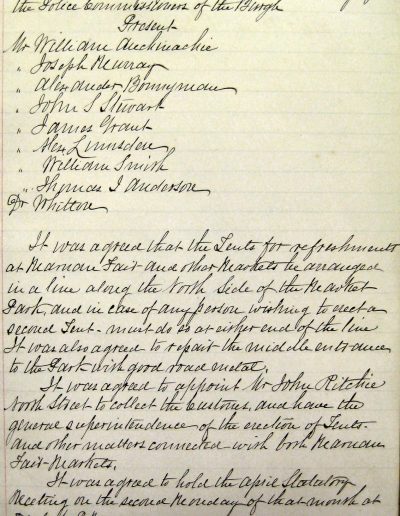 the Police Commissioners of the Burgh
Present
Mr William Auchinachie
" Joseph Murray
" Alexander Bonnyman
" John S Stewart
" James Grant
" Alex Lumsden
" William Smith
" Thomas J Anderson
Dr Whitton
It was agreed that the Tents for refreshments
at Marnan Fair and other Markets be arranged
in a line along the North Side of the Market
Park, and in case of any person wishing to erect a
second Tent - must do so at either end of the line
It was also agreed to repair the middle entrance
to the Park with good road metal.
It was agreed to appoint Mr John Ritchie
North Street to collect the Customs, and have the
general superintendence of the erection of Tents
and other matters connected with both Marnan
Fair Markets.
It was agreed to hold the April Statutory
Meeting on the second Monday of that month at